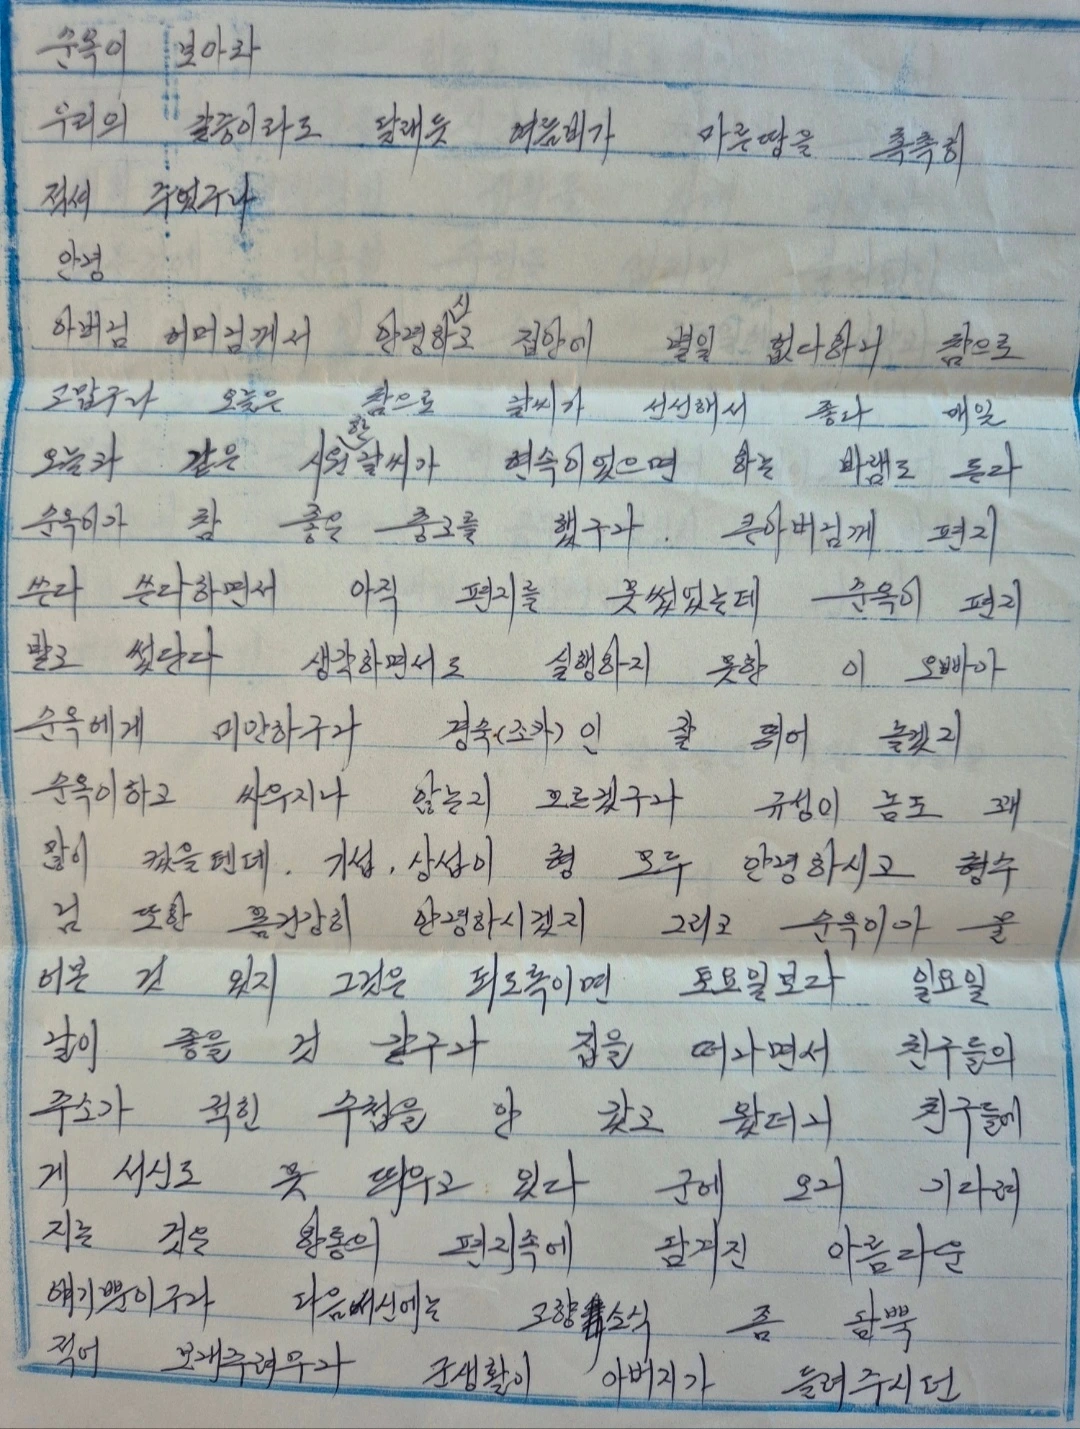 순옥이 보아라
우리의 갈증이라도 달래듯 여름비가 마른땅을 촉촉히
적셔 주었구나
안녕
아버님 어머님께서 안령하신고 집안에 별일 없다하니 참으로
고맙구나 오늘은 참으로 날씨가 선선해서 좋다 매일
오늘과 같은 시원한 날씨가 연속이었으면 하는 바램도 든다
순옥이가 참 좋은 충고를 했구나. 큰아버님께 편지
쓴다 쓴다하면서 아직 편지를 못썼었는데 순옥이 편지
받고 썼단다 생각하면서도 실행하지 못한 이 오빠아
순옥에게 미안하구나 경숙(조카)인 잘 뛰어 놀겠지
순옥이하고 싸우지나 않는지 모르겠구나 규성이 놈도 꽤
많이 컸을텐데. 기섭, 상섭이 형 모두 안령하시고 형수
님 또한 몸건강히 안령하시겠지 그리고 순옥이아 물
어본 것 있지 그것은 되도록이면 토요일보다 일요일
같이 좋을 것 같구나 집을 떠나면서 친구들의
주소가 적힌 수첩을 안 갖고 왔더니 친구들에
게 서신도 못 띄우고 있다 군에 오니 기다려
지는 것은 한통의 편지속에 담겨진 아름다운
얘기뿐이구나 다음서신에는 고향소식 좀 담뿍
적어 보내주려무나 군생활이 아버지가 들려주시던